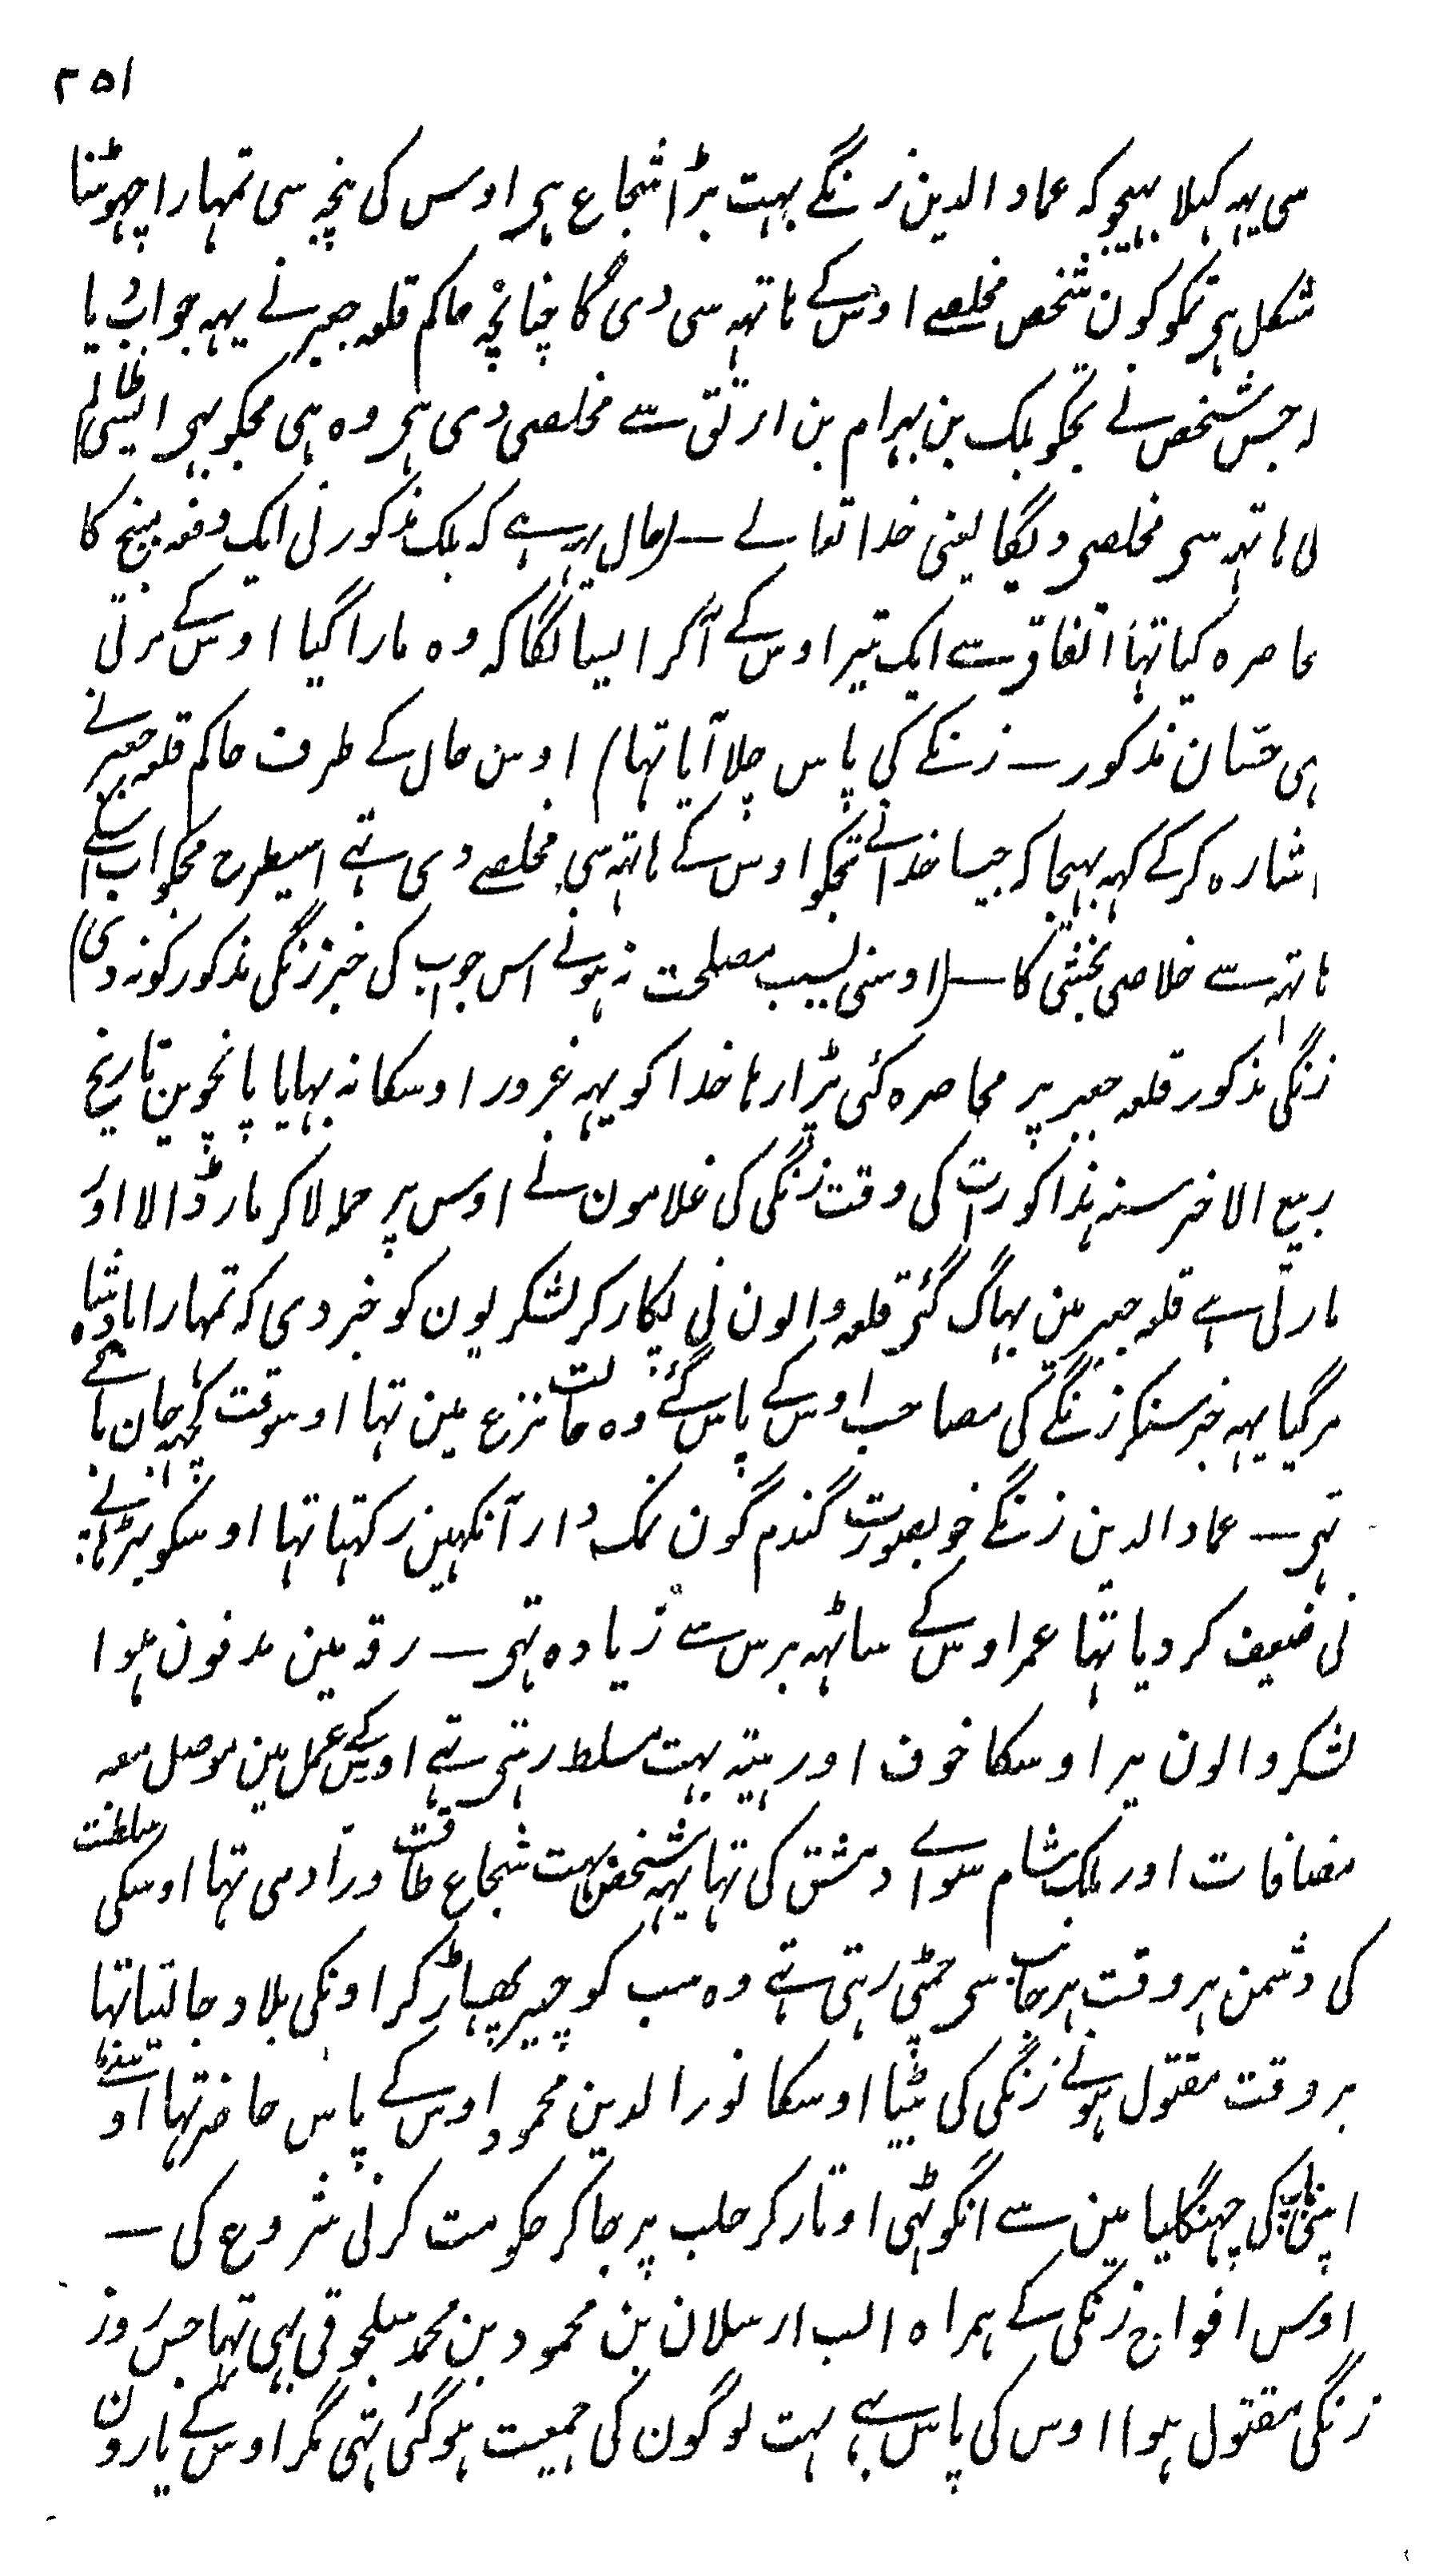 ۲۵۱
سی یہہ کہلا بہیجو کہ عماد الدین زنگے بہت بڑا شجاع ہی اوس کی پنجہ سی تمہارا چہوٹنا
شکل ہی تمکو کون شخص مخلصے اوس کے ہاتہہ سی دی گا چنانچہ حاکم قلعہ جعبر نے یہہ جواب دیا
ہ جس شخص نے تجکو بلک بن بہرام بن ارتق سے مخلصی دی ہی وہ ہی مجکو بہی ایسی ظالم
لی ہاتہہ سی مخلصی دیگا یعنی خدا تعالے — (حال یہہ ہے کہ بلک مذکور نی ایک دفعہ منبج کا
محاصرہ کیا تہا اتفاق سے ایک تیر اوس کے آکر ایسا لگا کہ وہ مارا گیا اوس کے مرتی
ہی حسان مذکور — زنگے کی پاس چلا آیا تہا) اوس حال کے طرف حاکم قلعہ جعبر نے
اشارہ کر کے کہہ بہیجا کہ جیسا خدا نے تجکو اوس کے ہاتہہ سی مخلصے دی ہتے اسیطرح مجکو اب اسکے
ہاتہہ سے خلاصی بخشی گا — (اوسنی بسبب مصلحت نہ ہونے اس جواب کی خبر زنگی مذکور کو نہ دی)
زنگی مذکور قلعہ جعبر پر محاصرہ کئی پڑا رہا خدا کو یہہ غرور اوسکا نہ بہایا پانچوین تاریخ
ربیع الاخر سنہ ہذا کو رات کی وقت زنگی کی غلامون نے اوس پر حملا کر مار ڈالا اور
مارتی ہے قلعہ جعبر مین بہاگ گئی قلعہ والون نی پکار کر لشکریون کو خبر دی کہ تمہارا بادشاہ
مر گیا یہہ خبر سنکر زنگے کی مصاحب اوس کے پاس گئے وہ حالت نزع مین تہا اوسوقت کچہہ جان باقے
تہی — عماد الدین زنگے خوبصورت گندم گون نمک دار آنکہین رکہتا تہا اوسکو بڑہاپے
نی ضعیف کر دیا تہا عمر اوس کے ساٹہہ برس سے زیادہ تہی — رقہ مین مدفون ہوا
لشکر والون پر اوسکا خوف اور ہیبتہ بہت مسلط رہتی ہتے اوس کے عمل مین موصل معہ
مضافات اور ملک شام سواے دمشق کی تہا یہہ شخص بہت شجاع طاقت ور آدمی تہا اوسکی سلطنت
کی دشمن ہر وقت ہر جانب سی چمٹی رہتی ہتے وہ سب کو چیر پھاڑ کر اونکی بلاد جا لیتا تہا
بر وقت مقتول ہونے زنگی کی بیٹا اوسکا نور الدین محمود اوس کے پاس حاضر تہا
اپنی باپ کی چہنگلیا مین سے انگوٹہی اوتار کر حلب پر جا کر حکومت کرنی شروع کی —
اوس افواج زنگی کے ہمراہ الب ارسلان بن محمود بن محمد سلجوقی بہی تہا جس روز
زنگی مقتول ہوا اوس کی پاس ہے بہت لوگون کی جمعیت ہو گئی تہی مگر اوس کے یارون